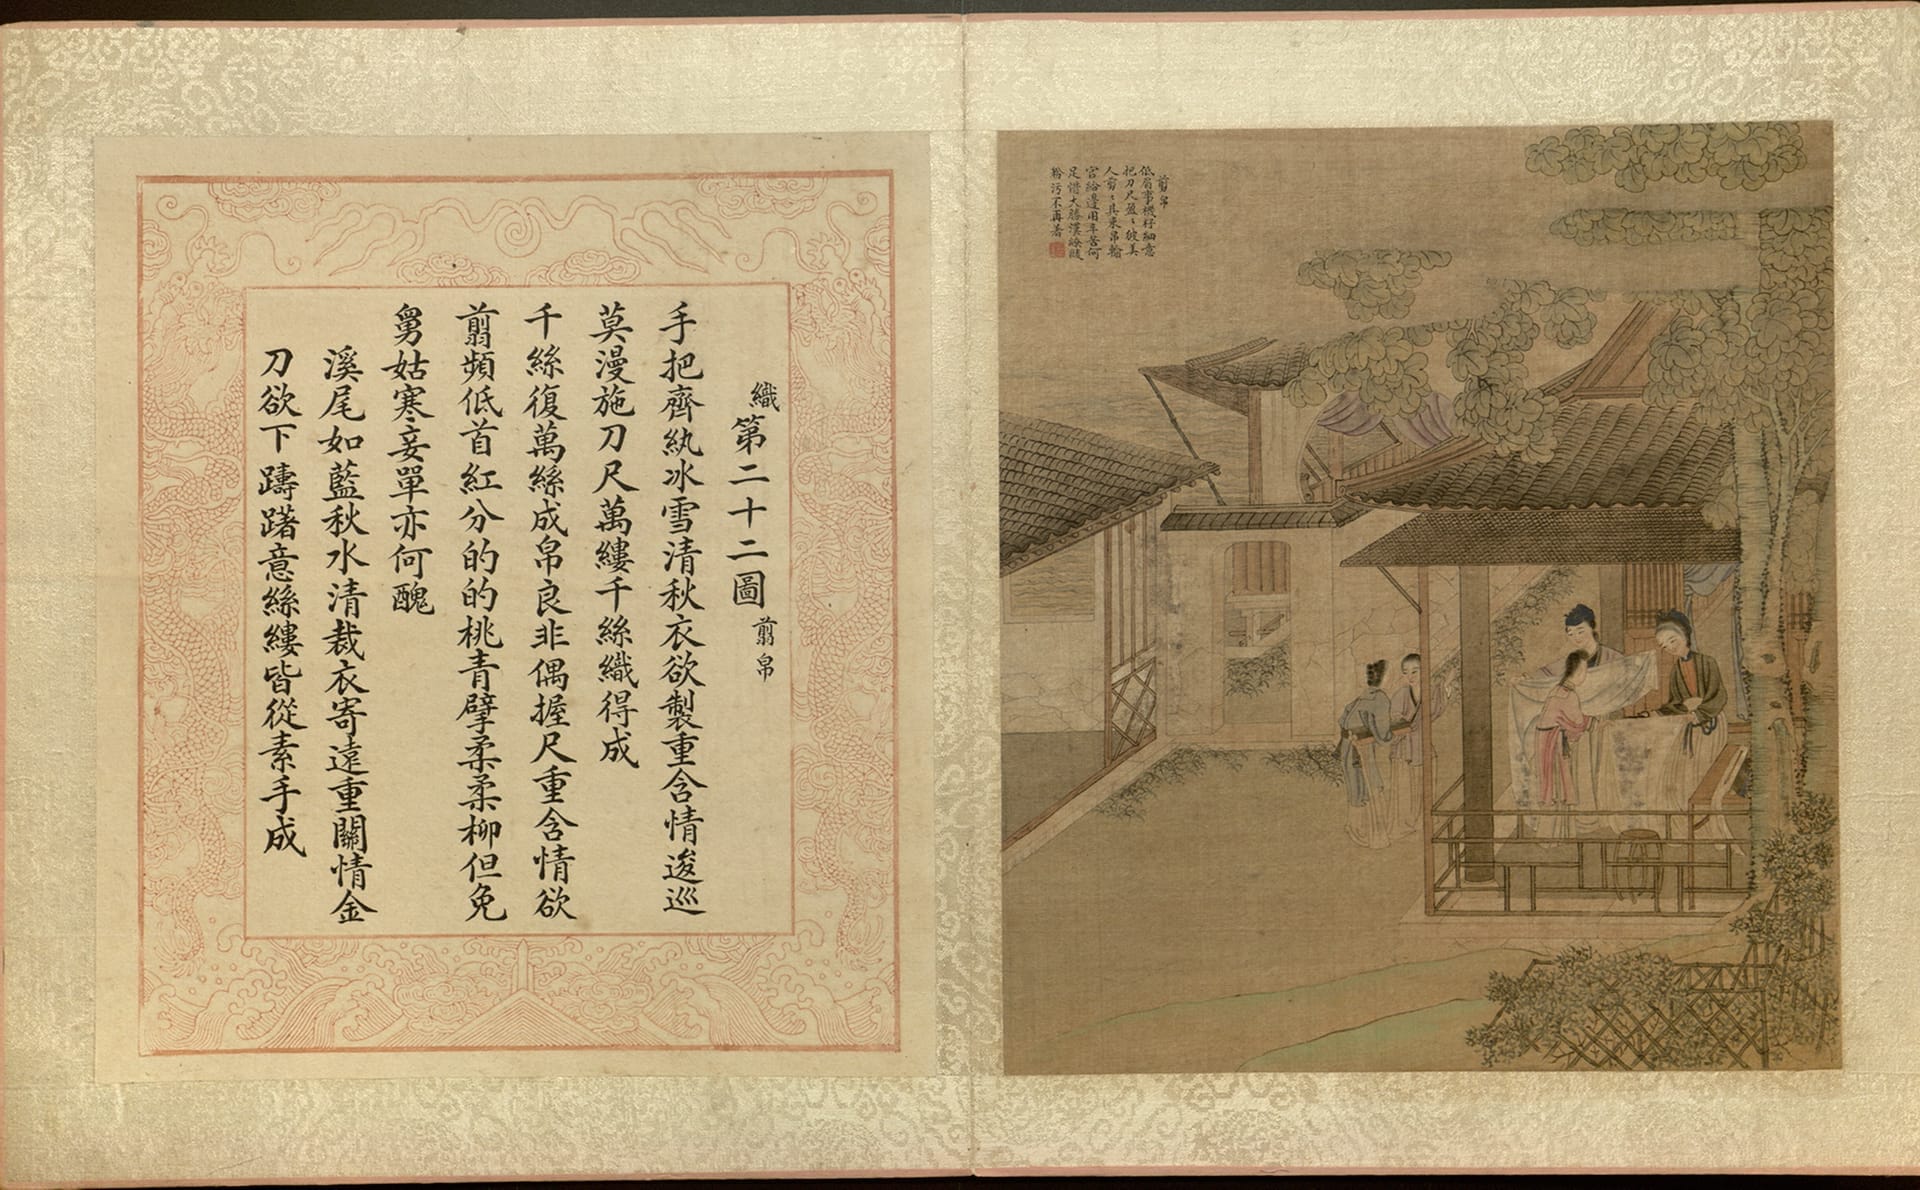 織第二十二圖 翦帛
手把齊紈冰雪清秋衣欲製重含情逡巡
莫漫施刀尺萬縷千絲織得成
千絲復萬絲成帛良非偶握尺重含情欲
翦頻低首紅分的的桃青擘柔柔柳但免
舅姑寒妾單亦何醜
溪尾如藍秋水清裁衣寄遠重關情金
刀欲下躊躇意絲縷皆從素手成
剪帛
低眉事機杼細意
把刀尺盈〻彼美
人剪〻其束帛輸
官給邊用辛苦何
足惜大勝漢繚綾
粉污不再著